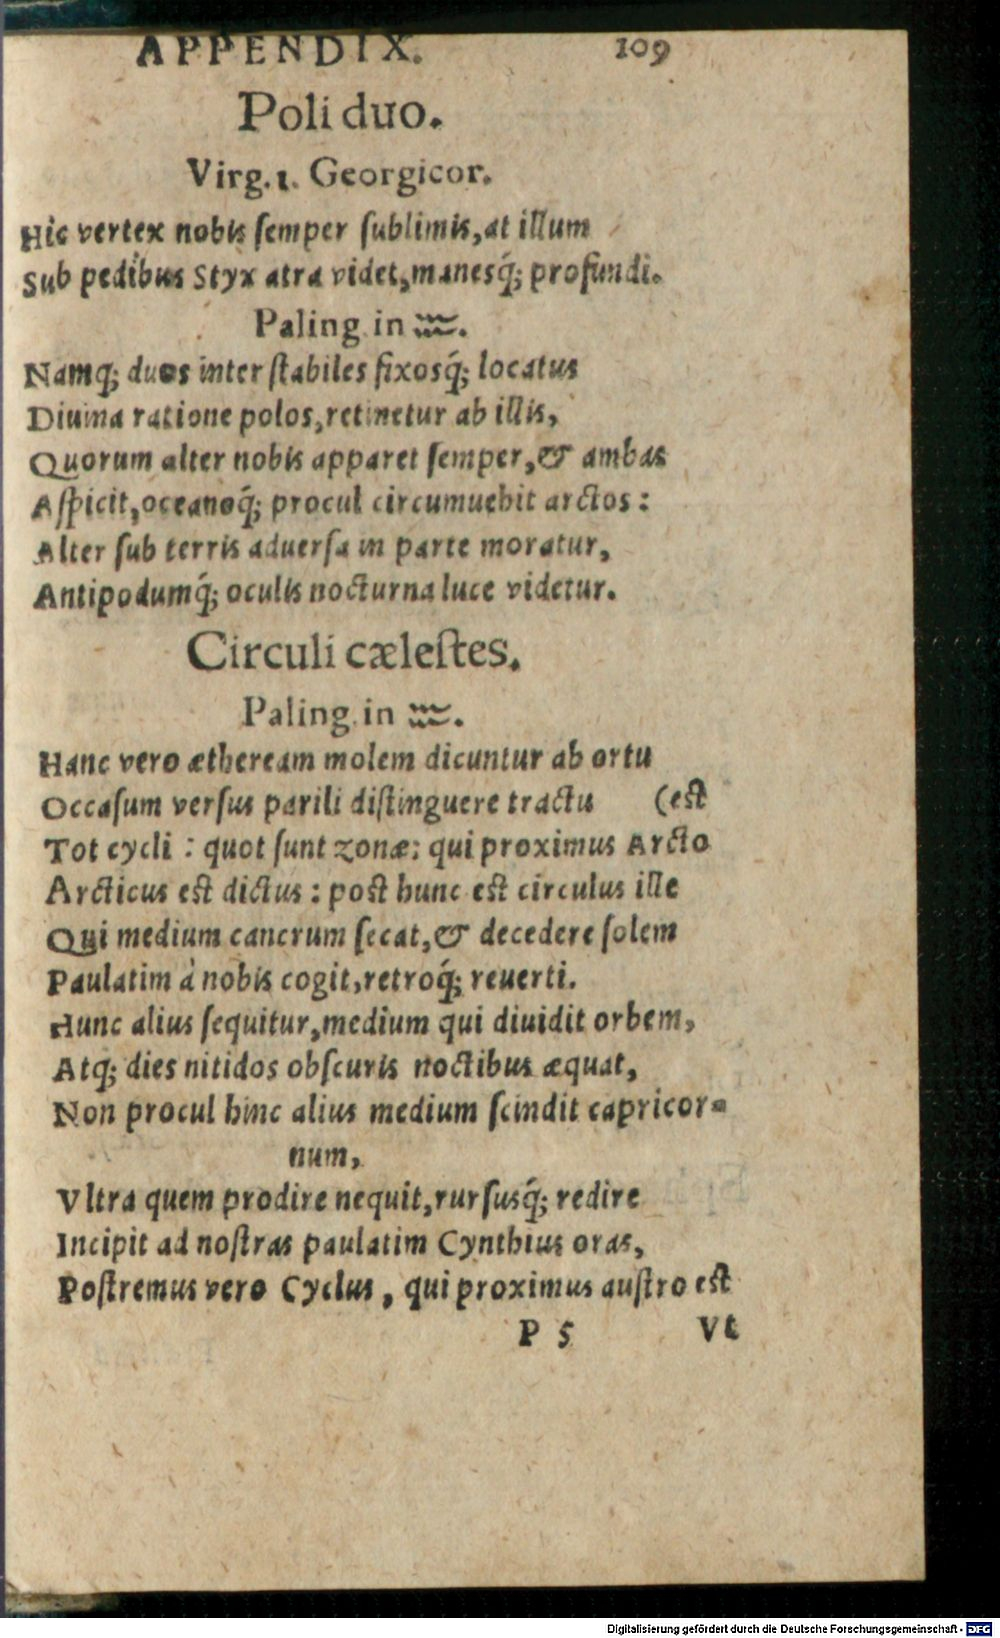 APPENDIX. 109
Poli duo.
Virg. 1. Georgicor.
Hic vertex nobis ſemper ſublimis, at illum
Sub pedibus Styx atra videt, manesq́; profundi.
Paling. in ♒.
Namq; duos inter ſtabiles fixosq́; locatus
Diuina ratione polos, retinetur ab illis,
Quorum alter nobis apparet ſemper, & ambas
Aſpicit, oceanoq́; procul circumuehit arctos:
Alter ſub terris aduerſa in parte moratur,
Antipodumq́; oculis nocturna luce videtur.
Circuli cæleſtes.
Paling. in ♒.
Hanc vero ætheream molem dicuntur ab ortu
Occaſum verſus parili diſtinguere tractu (est
Tot cycli: quot ſunt zonæ: qui proximus Arcto
Arcticus est dictus: post hunc est circulus ille
Qui medium cancrum ſecat, & decedere ſolem
Paulatim à nobis cogit, retroq́; reuerti.
Hunc alius ſequitur, medium qui diuidit orbem,
Atq; dies nitidos obſcuris noctibus æquat,
Non procul hinc alius medium ſcindit capricor-
num,
Vltra quem prodire nequit, rurſusq́; redire
Incipit ad noſtras paulatim Cynthius oras,
Poſtremus vero Cyclus, qui proximus auſtro est
P 5 Vt
Digitalisierung gefördert durch die Deutsche Forschungsgemeinschaft - DFG